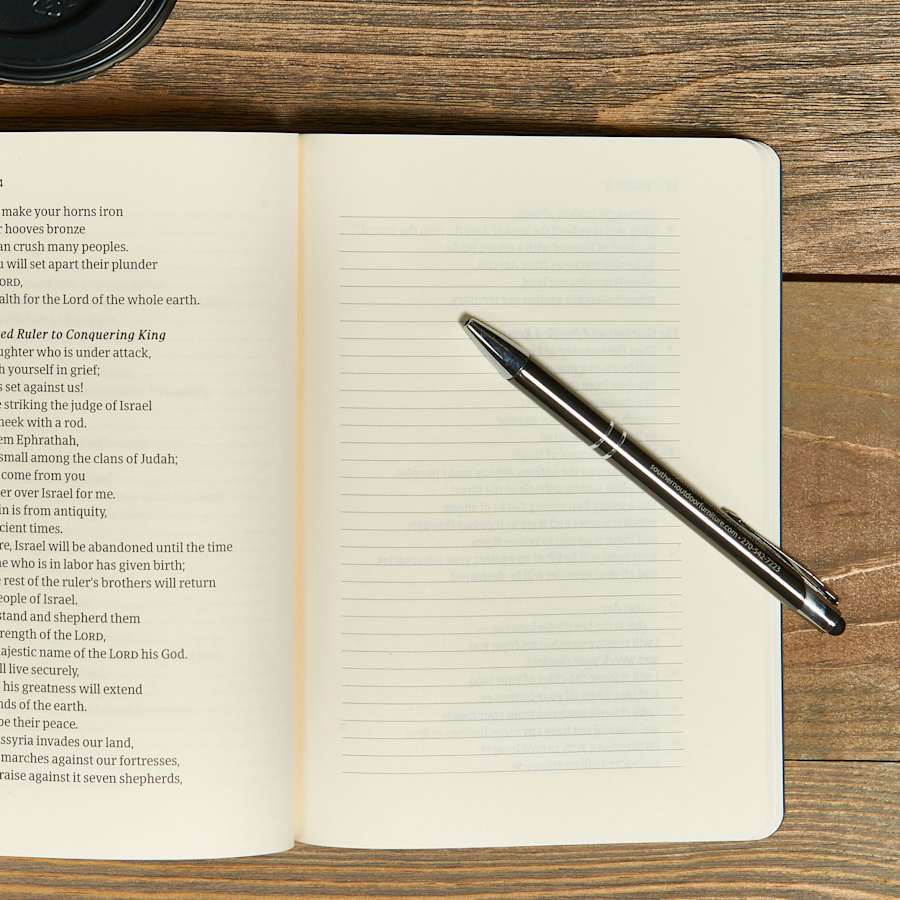 4
make your horns iron
r hooves bronze
an crush many peoples.
u will set apart their plunder
ORD,
alth for the Lord of the whole earth.
ed Ruler to Conquering King
ughter who is under attack,
h yourself in grief;
s set against us!
e striking the judge of Israel
heek with a rod.
em Ephrathah,
small among the clans of Judah;
come from you
er over Israel for me.
in is from antiquity,
cient times.
re, Israel will be abandoned until the time
ne who is in labor has given birth;
e rest of the ruler's brothers will return
eople of Israel.
stand and shepherd them
rength of the LORD,
ajestic name of the LORD his God.
ll live securely,
his greatness will extend
nds of the earth.
be their peace.
ssyria invades our land,
marches against our fortresses,
raise against it seven shepherds,
southernoutdoorfurniture.com • 270-542-7223